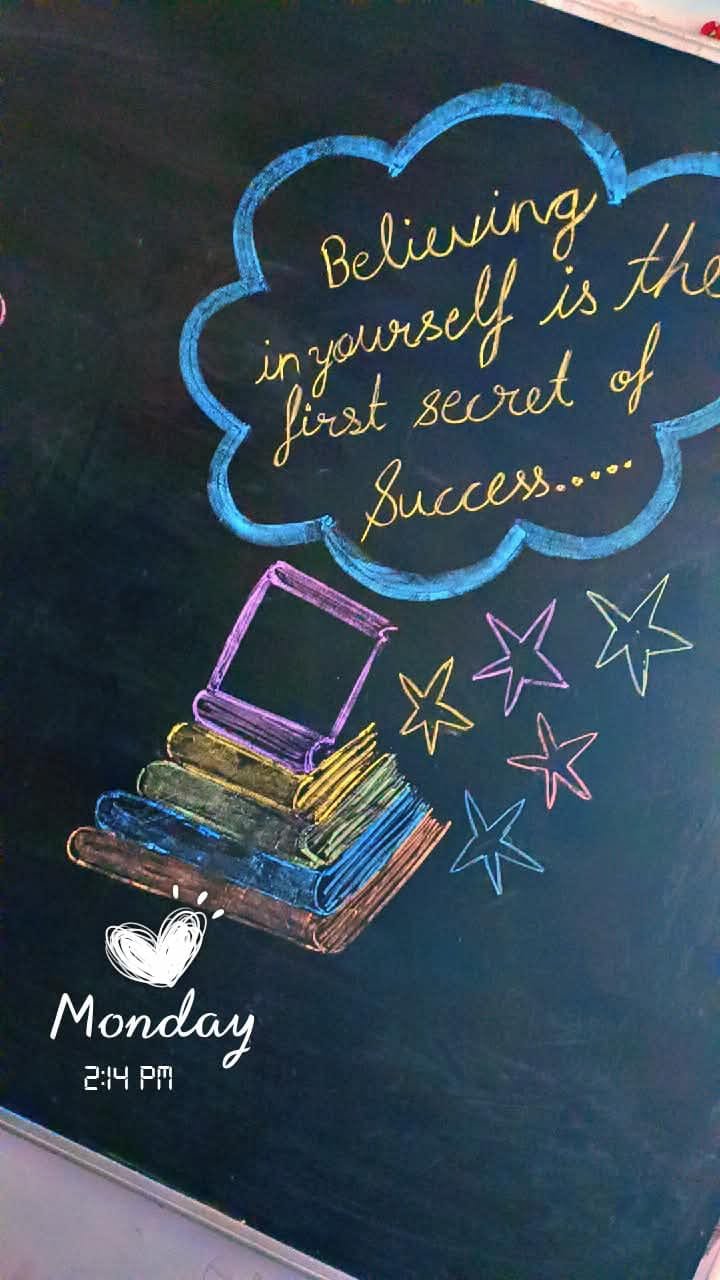 Believing
in yourself is the
first secret of
Success.....
Monday
2:14 PM